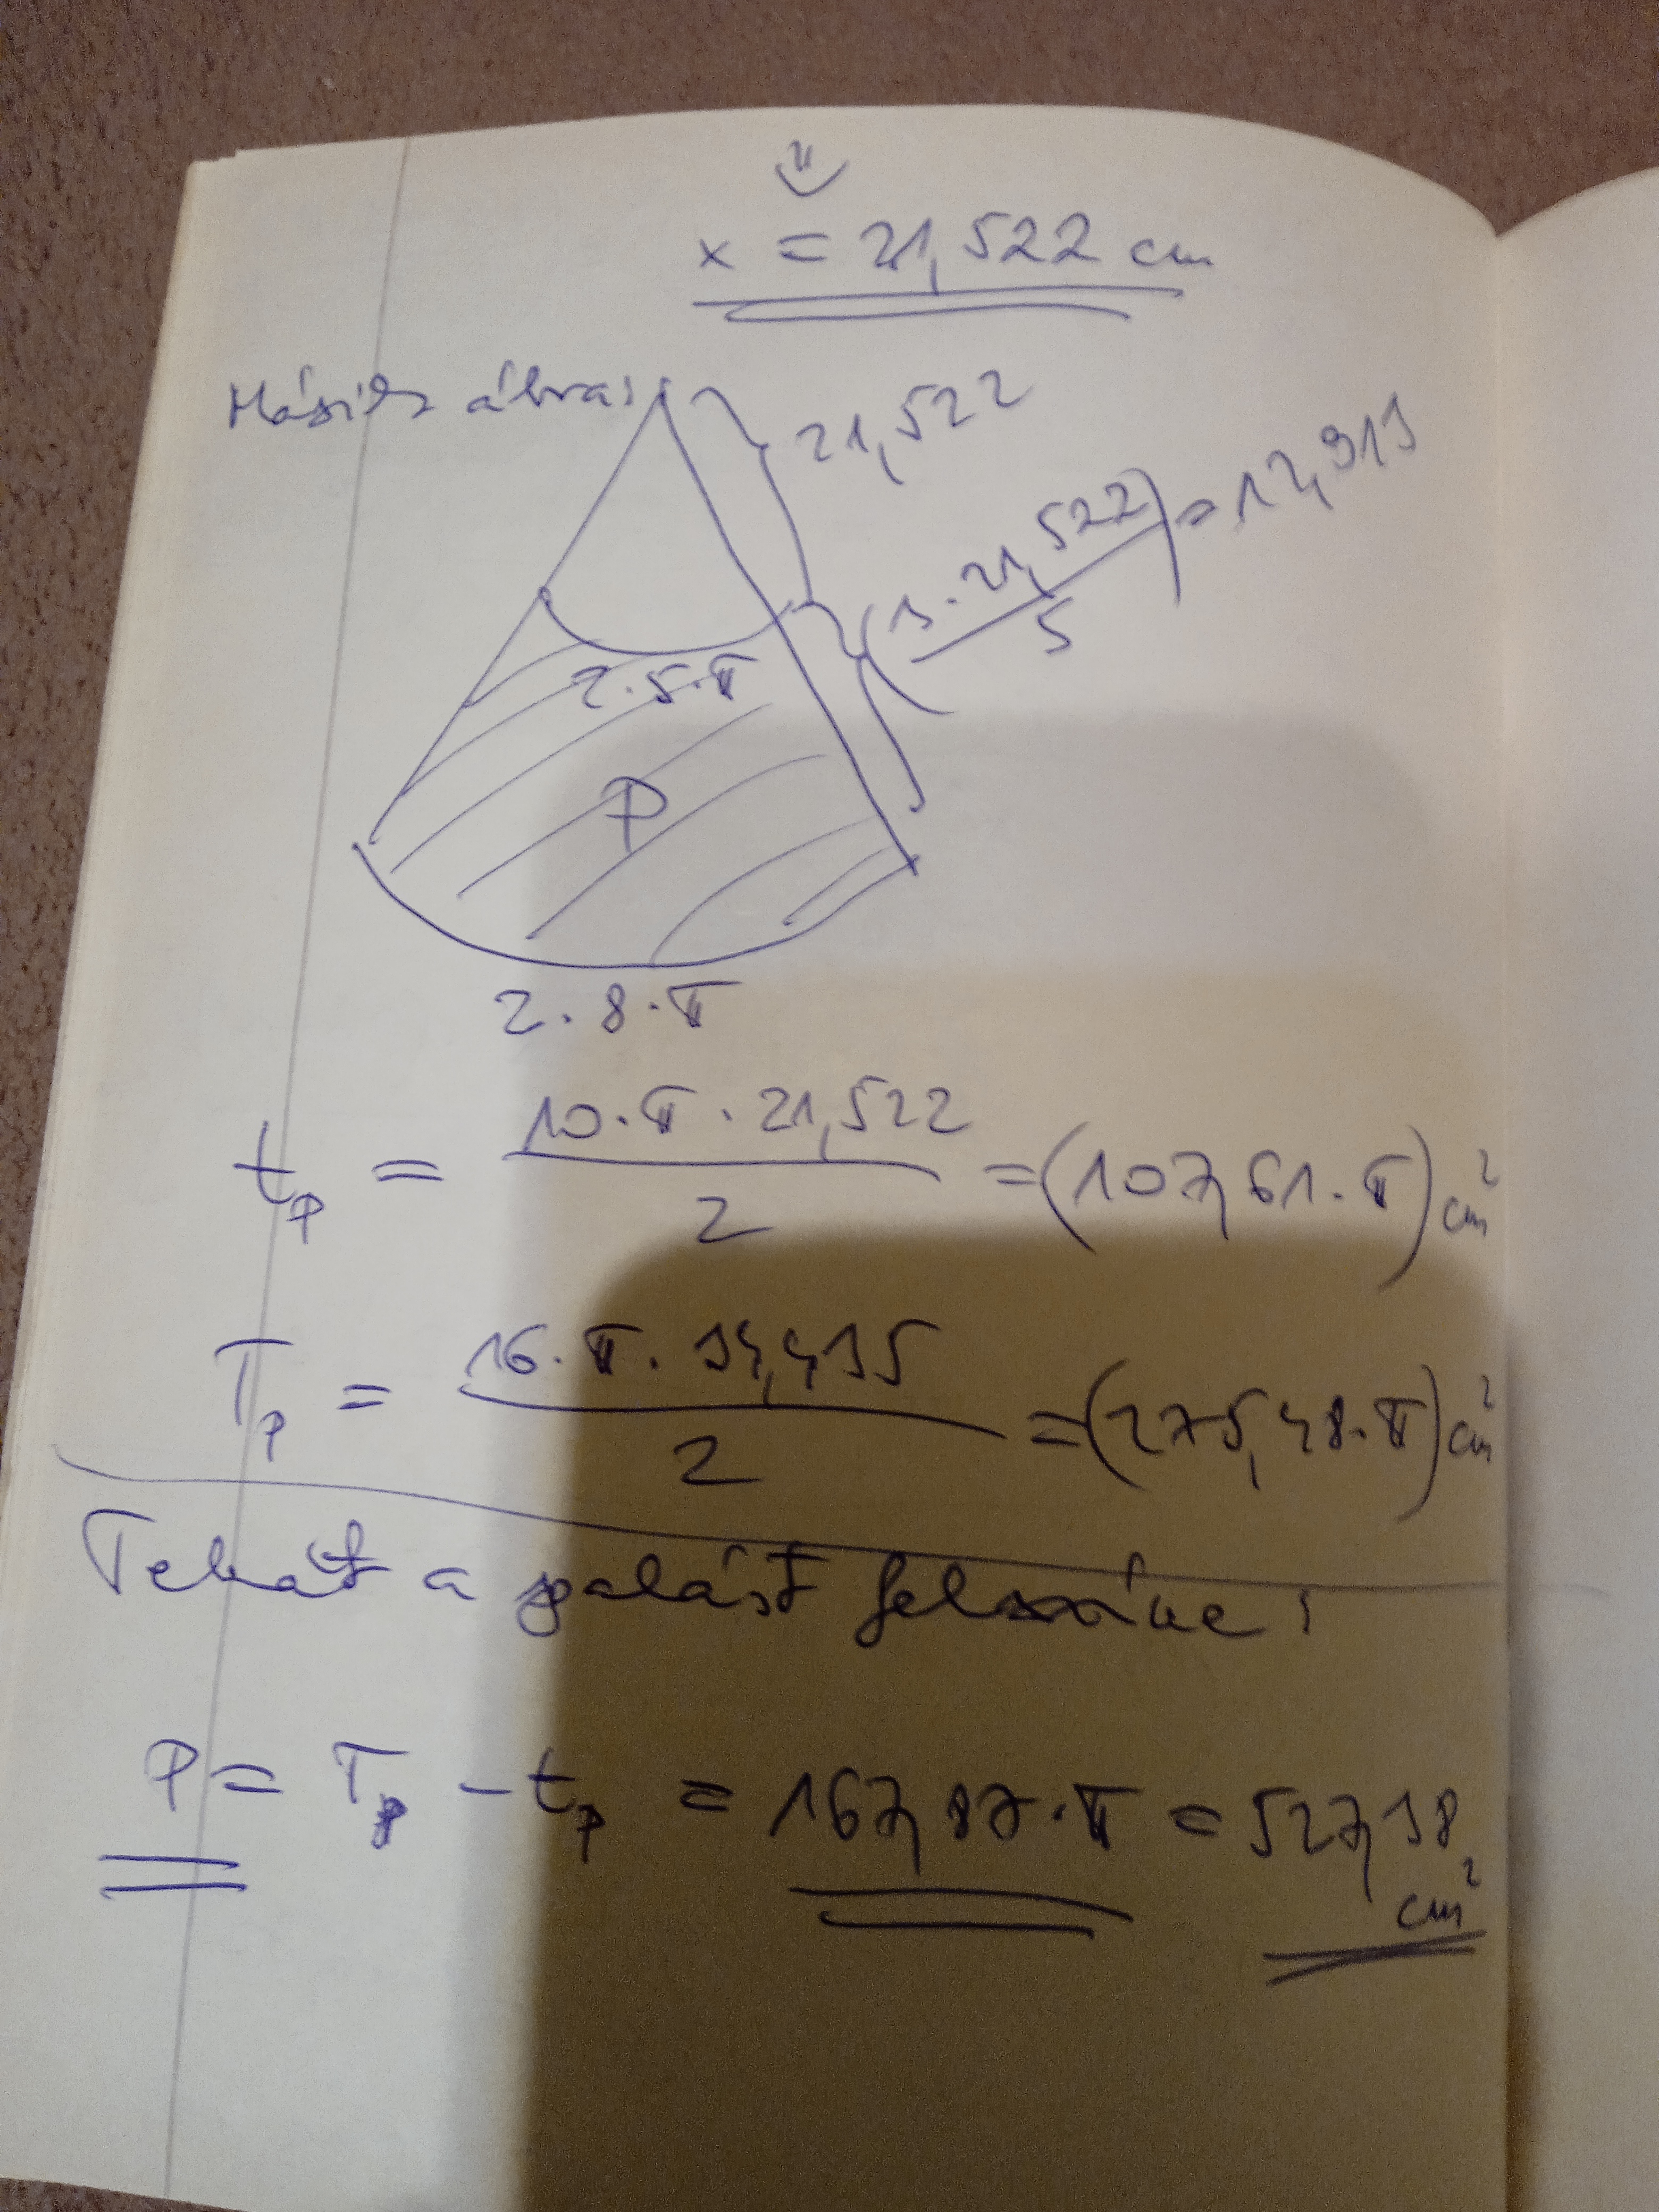 ⇓
x = 21,522 cm
Másik ábra:
21,522
(3·21,522/5) = 12,913
2·5·π
P
2·8·π
tₚ = 10·π·21,522/2 = (107,61·π) cm²
Tₚ = 16·π·34,435/2 = (275,48·π) cm²
Tehát a palást felszíne:
P = Tₚ - tₚ = 167,87·π = 527,38 cm²